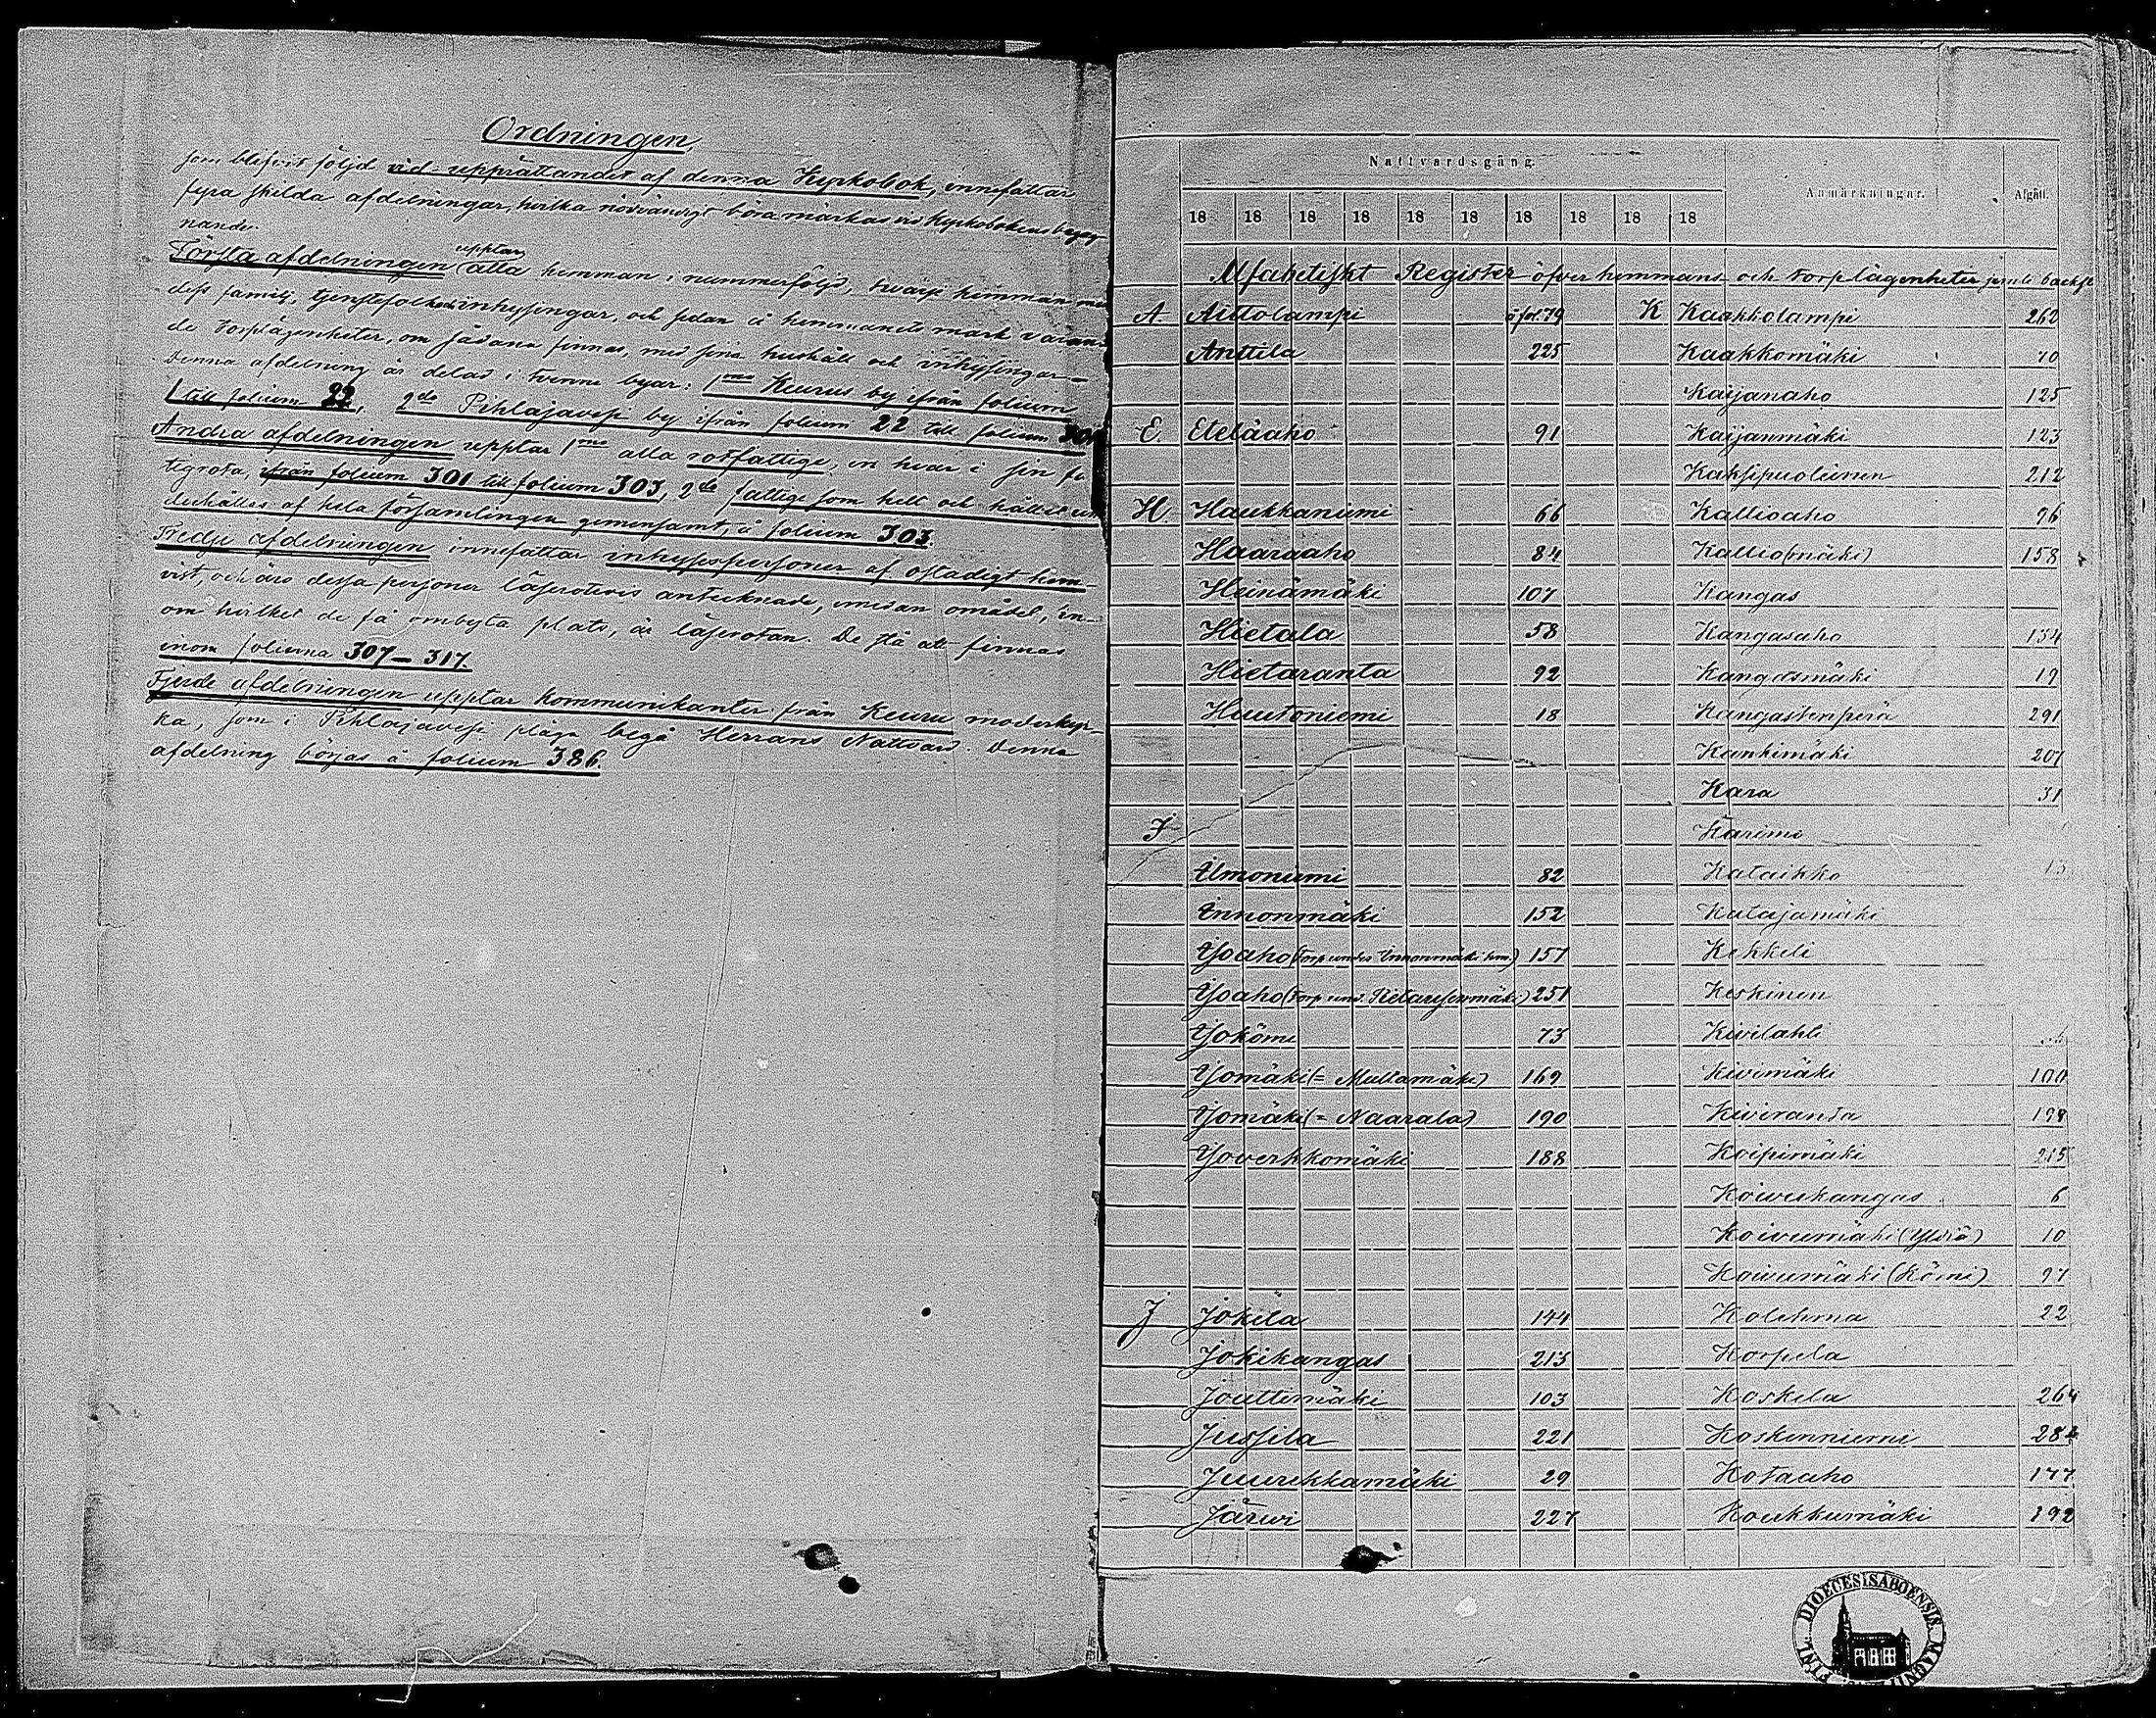 Ordningen
som blifvit följd vid upprättandet af denna Kyrkobok, innefattar
fyra skilda afdelningar, hvilka nödvändigt böra märkas vid kyrkobokens begag-
nande.
Första afdelningen upptar alla hemman i nummerföljd, hvarje hemman med
dess familj, tjenstefolk och inhysingar, och sedan å hemmanets mark varan-
de torplägenheter, om sådana finnas, med sina hushåll och inhysingar =
Denna afdelning är delad i tvenne byar: 1mo Keurus by ifrån folium
1 till folium 22, 2do Pihlajavesi by ifrån folium 22 till folium 301
Andra afdelningen upptar 1mo alla rotfattige, en hvar i sin fat-
tigrota, ifrån folium 301 till folium 303, 2do fattige som helt och hållet un-
derhållas af hela församlingen gemensamt, å folium 303.
Tredje afdelningen innefattar inhysespersoner af ostadigt hem-
vist, och äro dessa personer läserotevis antecknade, medan området, in-
om hvilket de få ombyta plats, är läserotan. De stå att finnas
inom folierna 307–317.
Fjerde afdelningen upptar kommunikanter från Keuru moderkyr-
ka, som i Pihlajavesi pläga begå Herrans Nattvard. Denna
afdelning börjas å folium 386.
Nattvardsgång. Anmärkningar. Afgått.
18 18 18 18 18 18 18 18 18 18
Alfabetiskt Register öfver hemmans och torplägenheter jemte backst
A Aittolampi å fol. 79 K Kaakkolampi 262
Anttila 225 Kaakkomäki 70
Kaijanaho 125
E. Eteläaho 91 Kaijanmäki 123
Kaksipuolinen 212
H. Haukkaniemi 66 Kallioaho 96
Haaraaho 84 Kallio(mäki) 158
Heinämäki 107 Kangas
Hietala 58 Kangasaho 134
Hietaranta 92 Kangasmäki 19
Huutoniemi 18 Kangastenperä 291
Kankimäki 207
Kara 31
I Karimo
Ilmoniemi 82 Kataikko
Innonmäki 152 Katajamäki
Isoaho (torp under Innonmäki hm) 157 Kekkeli
Isoaho (torp und. Pietarisenmäki) 251 Keskinen
Isokömi 73 Kivilahti
Isomäki (= Multamäki) 169 Kivimäki 100
Isomäki (= Naarala) 190 Kiviranta 198
Isoverkkomäki 188 Koipimäki 215
Koivukangas 6
Koivumäki (Yltiä) 10
Koivumäki (Kömi) 97
J Jokela 144 Kolehma 22
Jokikangas 213 Korpela
Jouttimäki 103 Koskela 264
Jussila 221 Koskenniemi
Juurikkamäki 29 Kotaaho 177
Järvi 227 Koukkumäki 192
DIOECESIS ABOENSIS MAGNI FINL.